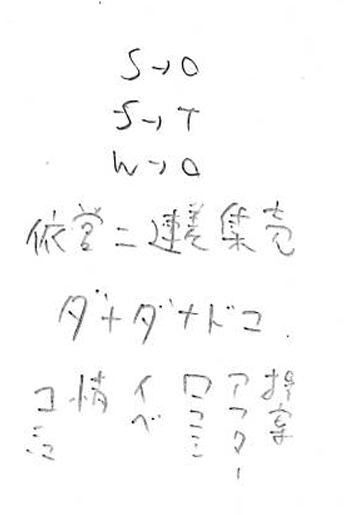 S→O
S→T
W→O
依営ニ連差集売
ダナダナドコ
提案
アフター
口コミ
イベ
情
コミュ